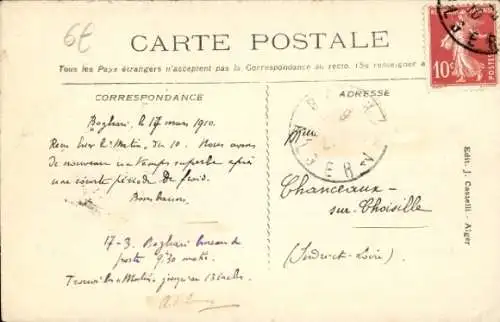 6€
CARTE POSTALE
Tous les Pays étrangers n'acceptent pas la Correspondance au recto. (Se renseigner à
CORRESPONDANCE
ADRESSE
10c
POSTES
Boghari, le 17 mars 1910.
Reçu hier le "Matin" du 10. Nous avons
de nouveau un temps superbe après
une courte période de froid.
Bons baisers.
17-3. Boghari bureau de
poste 9h30 matin.
"Matin" jusqu'au 13 inclus.
Melle
Chanceaux-
sur-Choisille
(Indre-et-Loire)
Edit. J. Castelli - Alger